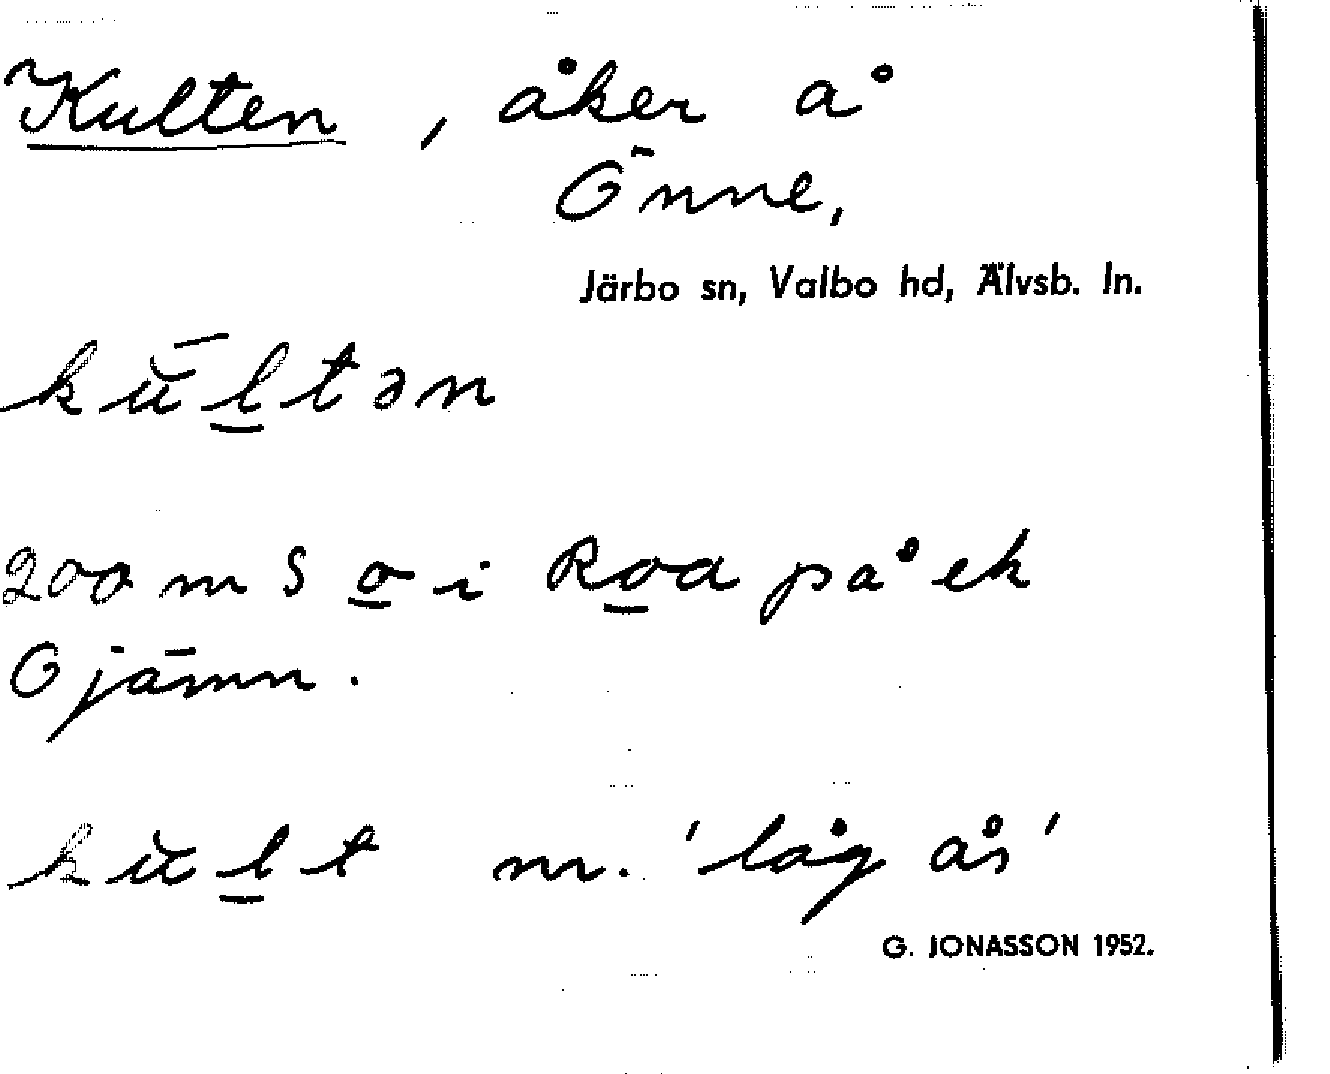 Kulten, åker å
Önne,
Järbo sn, Valbo hd, Älvsb. ln.
kùltən
200 m S o i Roa på ek
Ojämn.
kùlt m. 'låg ås'
G. JONASSON 1952.